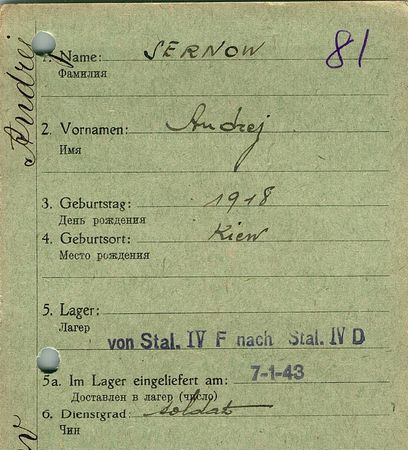 81
Andrej
1. Name: SERNOW
Фамилия
2. Vornamen: Andrej
Имя
3. Geburtstag: 1918
День рождения
4. Geburtsort: Kiew
Место рождения
5. Lager:
Лагер
von Stal. IV F nach Stal. IV D
5a. Im Lager eingeliefert am: 7-1-43
Доставлен в лагер (число)
6. Dienstgrad: soldat
Чин